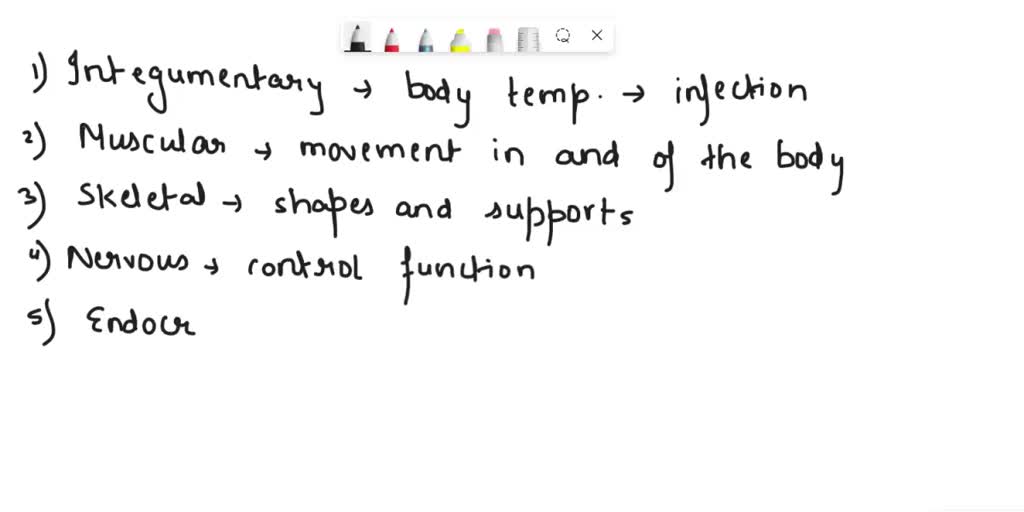 1) Integumentary → body temp. → infection
2) Muscular → movement in and of the body
3) Skeletal → shapes and supports
4) Nervous → control function
5) Endocr